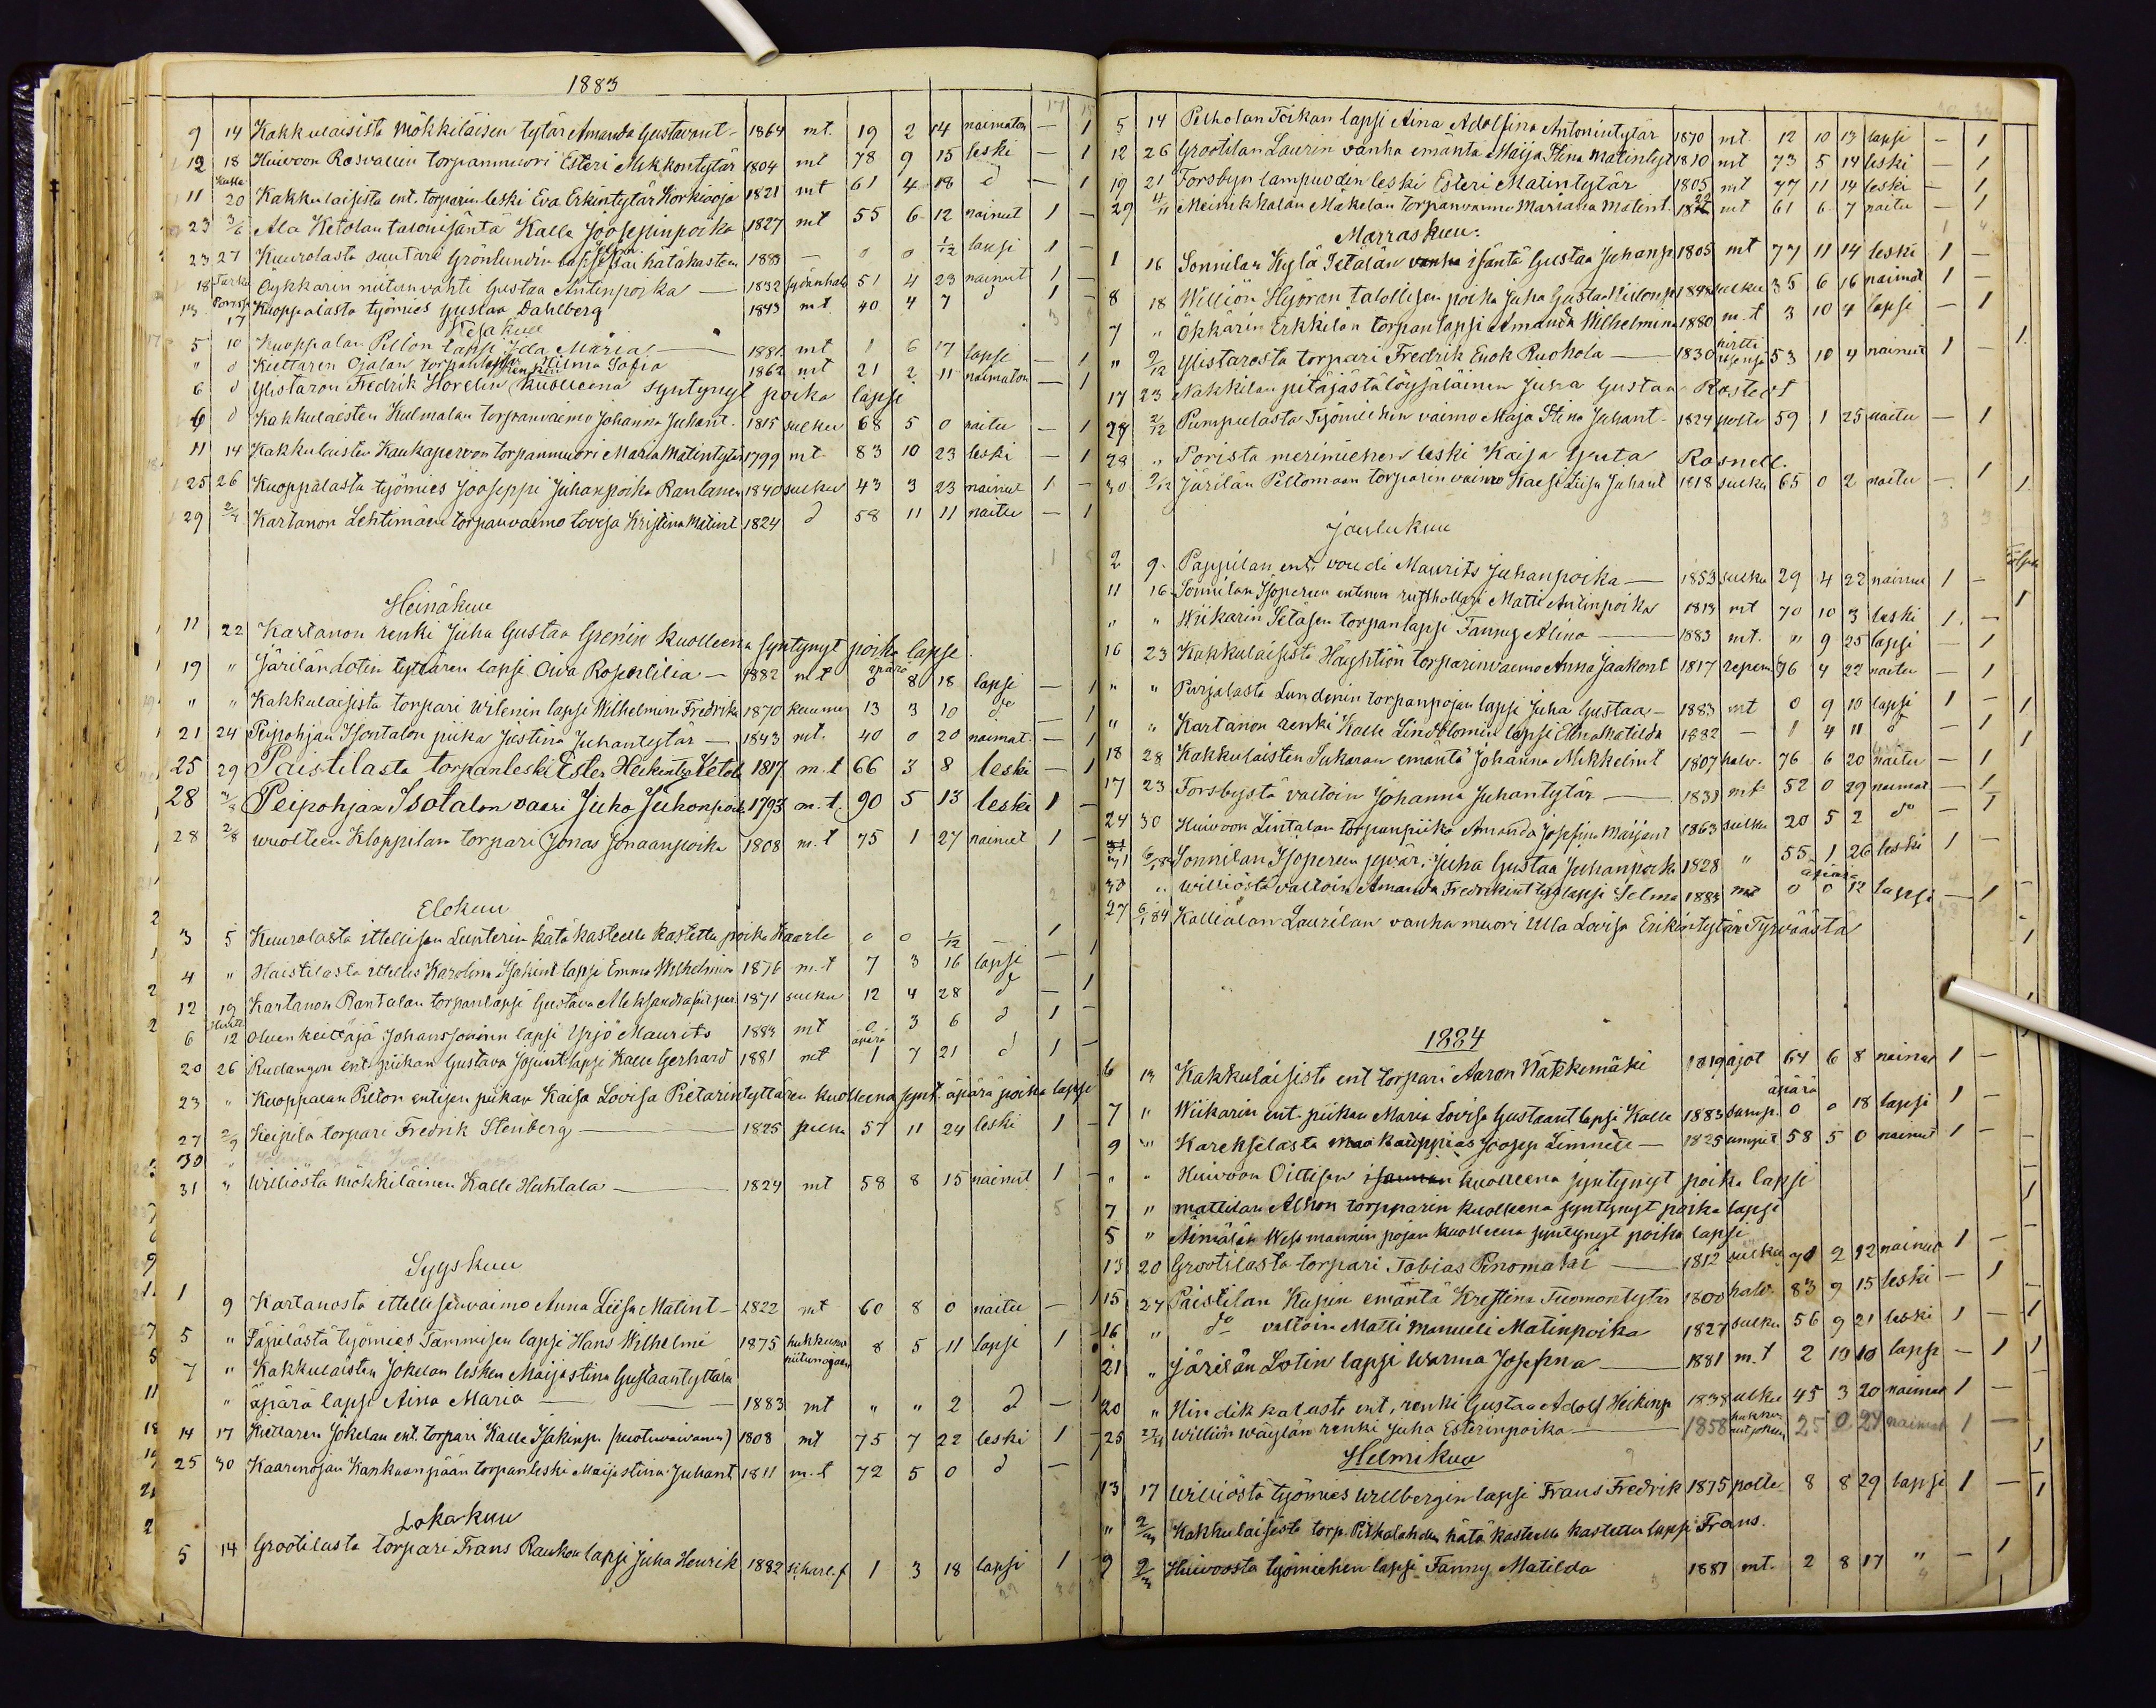 1883
9 14 Kakkulaisista mökkiläisen tytär Amanda Gustavint - 1864 mt. 19 2 14 naimaton — 1
12 18 Huivoon Rosvallin torpanmuori Esteri Mikkontytär 1804 mt 78 9 15 leski — 1
11 20 Kakkulaisista ent. torparin leski Eva Erkintytär Korkiaoja 1821 mt 61 4 18 d — 1
23 3/6 Ala Ketolan talonisäntä Kalle Jooseppinpoika 1827 mt 55 6 12 nainut 1 —
23 27 Kuurolasta suutari Grönlundin lapsi hätäkasteen 1883 — 0 0 1/12 lapsi 1 —
18 Turku Öykkärin niitunvahti Gustaa Antinpoika — 1832 51 4 23 nainut 1 —
13 17 Kuoppalasta työmies Gustaa Dahlberg 1843 mt. 40 4 7 d 1 —
Kesäkuu
5 10 Kuoppalan Pillon lapsi Ida Maria — 1881 mt 1 6 17 lapsi — 1
" d Kiettaren Ojalan torpan Hilma Sofia 1862 mt 21 2 11 naimaton — 1
6 d Ylistaron Fredrik Horelin kuolleena syntynyt poika lapsi
6 d Kakkulaisten Kulmalan torpanvaimo Johanna Juhant. 1815 sulku 68 5 0 naitu — 1
11 14 Kakkulaisten Kaukaperoon torpanmuori Maria Matintytär 1799 mt 83 10 23 leski — 1
25 26 Kuoppalasta työmies Jooseppi Juhanpoika Rantanen 1840 sulku 43 3 23 nainut 1 —
29 2/7 Kartanon Lehtimäen torpanvaimo Lovisa Kristina Matint 1824 d 58 11 11 naitu — 1
Heinäkuu
11 22 Kartanon renki Juha Gustaa Grenin kuolleena syntynyt poika lapsi.
19 " Järilän Lotin tyttären lapsi Oiva Rosentilia — 1882 mt äpärä 0 8 18 lapsi — 1
" " Kakkulaisista torpari Urlenin lapsi Wilhelmina Fredrika 1870 kuume 13 3 10 d — 1
21 24 Peipohjan Isontalon piika Justina Juhantytär — 1843 mt. 40 0 20 naimat. — 1
25 29 Paistilasta torpanleski Ester Heikintyt Ketola 1817 m.t 66 3 8 leski — 1
28 Peipohjan Isotalon vaari Juho Juhonpoika 1793 m.t. 90 5 13 leski 1 —
28 2/8 Wuolteen Kloppilan torpari Jonas Jonaanpoika 1808 m.t 75 1 27 nainut 1 —
Elokuu
3 5 Kuurolasta ittellisen Lunterin hätäkasteella kastettu poika Kaarle 0 0 1/12 1
4 " Haistilasta ittellis Karolina Isakint lapsi Emma Wilhelmina 1876 m.t 7 3 16 lapsi — 1
12 19 Kartanon Rantalan torpanlapsi Gustava Aleksandra 1871 sulku 12 4 28 d — 1
6 12 Oluenkeittäjä Johanssonin lapsi Yrjö Maurits 1883 mt 0 3 6 d 1 —
20 26 Rudangon ent. piikan Gustava lapsi Kalle Gerhard 1881 mt äpärä 1 7 21 d 1 —
23 " Kuoppalan Pilton entisen piikan Kaisa Lovisa Pietarintyttären kuolleena synt. äpärä poika lapsi
27 2/9 Keipilä torpari Fredrik Stenberg — 1825 57 11 24 leski 1 —
30 "
31 " Williöstä mökkiläinen Kalle Huhtala — 1824 mt 58 8 15 nainut 1 —
Syyskuu
1 9 Kartanosta ittellisenvaimo Anna Liisa Matint — 1822 mt 60 8 0 naitu — 1
5 " työmies Tammisen lapsi Hans Wilhelmi 1875 hukkunut 8 5 11 lapsi 1
7 " Kakkulaisten Jokelan lesken Maijastina Gustaantyttären
" äpärä lapsi Aina Maria — 1883 mt " " 2 d — 1
14 17 Kiettaren Jokelan ent. torpari Kalle Isakinp. (ruotuvaivainen) 1808 mt 75 7 22 leski 1 —
25 30 Kaarenojan Kankaanpään torpanleski Maijastina Juhant 1811 m.t 72 5 0 d —
Lokakuu
5 14 Grootilasta torpari Frans Raukon lapsi Juha Henrik 1882 1 3 18 lapsi 1
5 14 Pelholan Toikan lapsi Aina Adolfina Antonintytär 1870 mt. 12 10 13 lapsi — 1
12 26 Grootilan Laurin vanha emäntä Maija Stina Matintyt 1810 mt 73 5 14 leski — 1
19 21 Forsbyn lampuoden leski Esteri Matintytär 1805 mt 77 11 14 leski — 1
29 4/11 Meinikkalan Mäkelän torpanvaimo Mariana Matint. 1822 mt 61 6 7 naitu — 1
Marraskuu.
1 16 Sonnilan Kylä Isätalän vanha isäntä Gustaa Juhanp 1805 mt 77 11 14 leski 1 —
8 18 Williön Hyöran talollisen poika Juha Gustaa 1848 sulku 35 6 16 naimat 1 —
7 " Ökkärin Erkkilän torpan lapsi Amanda Wilhelmina 1880 m.t 3 10 4 lapsi — 1
" 2/12 Ylistarosta torpari Fredrik Enok Ruohola — 1830 53 10 4 nainut 1 —
17 23 Nakkilan pitäjästä löysäläinen Juha Gustaa Rostedt
28 2/12 Pumpulasta Työmiehen vaimo Maja Stina Juhant — 1824 polte 59 1 25 naitu — 1
28 " Porista merimiehen leski Kaisa Greta Rosnell.
30 9/12 Järilän Peltomaan torparin vaimo Kaisa Liisa Juhant 1818 sulku 65 0 2 naitu — 1
Joulukuu
2 9. Pappilan ent. voudi Maurits Juhanpoika — 1853 sulku 29 4 22 nainut 1 —
11 16 Sonnilan Isopereen entinen rusthollari Matti Antinpoika 1813 mt 70 10 3 leski 1
" " Wiikarin Setäsen torpanlapsi Fanny Alina — 1883 mt. " 9 25 lapsi — 1
16 23 Kakkulaisista Häyhtiön torparinvaimo Anna Jaakont 1817 76 4 22 naitu — 1
" " Purjalasta Lundenin torpanpojan lapsi Juha Gustaa — 1883 mt 0 9 10 lapsi 1 —
" " Kartanon renki Kalle Lindblomin lapsi Elna Matilda 1882 — 1 4 11 d — 1
18 28 Kakkulaisten Sukaran emäntä Johanna Mikkelint 1807 halv. 76 6 20 naitu — 1
17 23 Forsbystä valtoin Johanna Juhantytär — 1831 mt 52 0 29 naimat — 1
24 30 Huivoon Lintalan torpanpiika Amanda Josefina Maijant 1863 sulku 20 5 2 do — 1
31 6/1 84 Sonnilan Isopereen Juha Gustaa Juhanpoik 1828 " 55 1 26 leski 1 —
30 " Williöstä valtoin Amanda Fredrikint tyt lapsi Selma 1883 mt äpärä 0 0 12 lapsi — 1
27 6/1 84 Kallialan Laurilan vanha muori Ulla Lovisa Erikintytär Tyrväästä
1884
6 13 Kakkulaisista ent torpari Aaron Nätkkemäki 1819 ajot 64 6 8 nainut 1 —
7 " Wiikarin ent. piikan Maria Lovisa Gustaant lapsi Kalle 1883 äpärä 0 0 18 lapsi 1 —
9 " Karekselasta maakauppias Joosep Limnell — 1825 umpit 58 5 0 nainut 1 —
" " Huivoon Oittisen isännän kuolleena syntynyt poika lapsi
7 " Mattilan Alhon torpparin kuolleena syntynyt poika lapsi
5 " Äimälän Wessmannin pojan kuolleena syntynyt poika lapsi
13 20 Grootilasta torpari Tobias Pinomäki — 1812 sulku 71 2 12 nainut 1 —
15 27 Paistilan Kupin emäntä Krestina Tuomontytär 1800 halv. 83 9 15 leski — 1
16 " do valtoin Matti Manueli Matinpoika 1827 sulku 56 9 21 leski 1 —
21 " Järilän Lotin lapsi Warma Josefina — 1881 m.t 2 10 10 laps — 1
20 " Hindikkalasta ent. renki Gustaa Adolf Heikinp 1838 sulku 45 3 20 naimat 1 —
25 Williön Wäylän renki Juha Esterinpoika — 1858 25 0 24 naimat 1 —
Helmikuu
13 17 Williöstä työmies Willbergin lapsi Frans Fredrik 1875 polte 8 8 29 lapsi 1 —
" 2/3 Kakkulaisista torp. Pitkälahden hätäkasteella kastettu lapsi Frans.
9 2/3 Huivoosta työmiehen lapsi Fanny Matilda 1881 mt. 2 8 17 " — 1